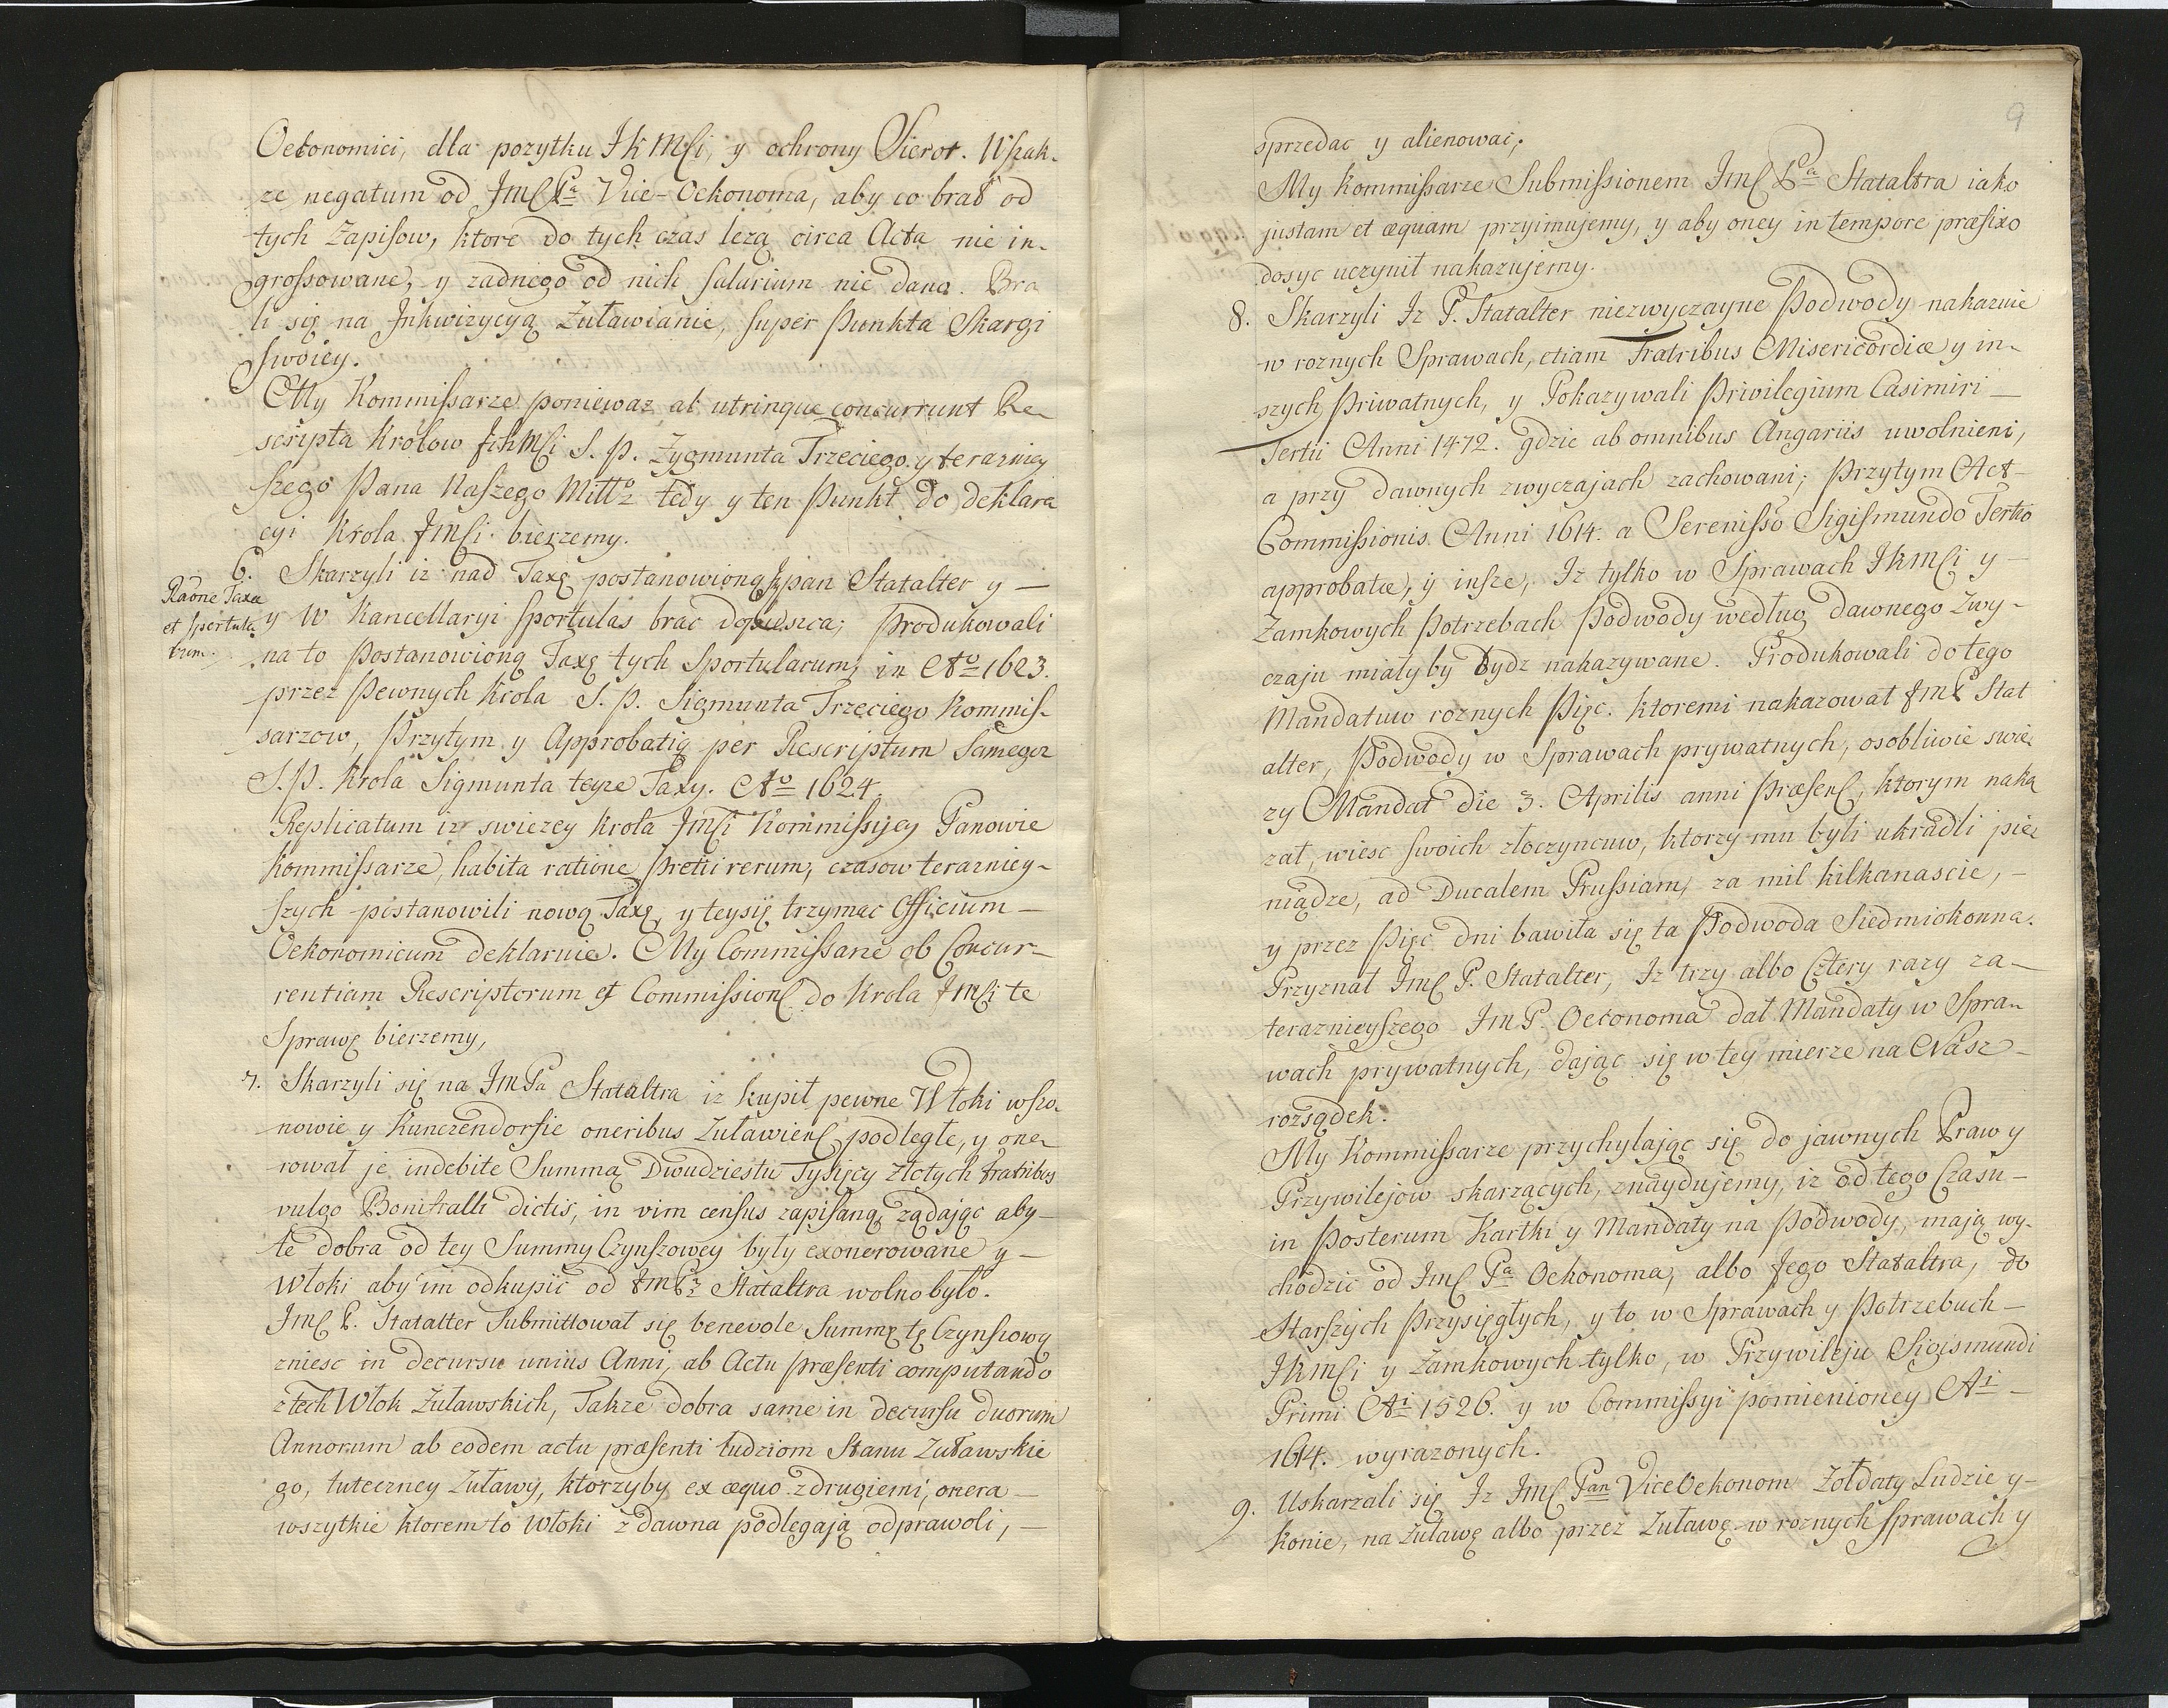 Oekonomici, dla pozytku JKMsci, y ochrony Sierot. Wszak-
ze negatum od Jmsc Pa Vice-Oekonoma, aby co brał od
tych Zapisow, ktore do tych czas lezą circa Acta nie in-
grossowane, y zadnego od nich Salarium nie dano. Bra
li się na Inkwizycyą Zuławianie, super Punkta Skargi
swoiey.
My Kommissarze poniewaz ab utrinque concurrunt Re-
scripta Krolow JchMsci S. P. Zygmunta Trzeciego y terazniey
szego Pana Naszego Miłł° tedy y ten Punkt do deklara
cyi Krola JMsci bierzemy.
6. Skarzyli iz nad Taxę postanowioną Jpan Statalter y —
Raōne Taxæ
et Sportula
rum.
y W Kancellaryi Sportulas brac dopuszca; Produkowali
na to Postanowioną Taxę tych Sportularum, in Aō 1623.
przez Pewnych Krola S. P. Sigmunta Trzeciego Kommis-
sarzow, Przytym y Approbatię per Rescriptum Samego
S. P. Krola Sigmunta teyze Taxy. Aō 1624.
Replicatum iz swiezey Krola JMsci Kommissyey Panowie
Kommissarze, habita ratione Pretii rerum, czasow terazniey-
szych postanowili nową Taxę, y tey się trzymac Officium —
Oekonomicum deklaruie. My Commissarie ob Concur-
rentiam Rescriptorum et Commission do Krola JMsci te
Sprawę bierzemy,
7. Skarzyli się na JmPa Statałtra iz kupił pewne Włoki w Szo-
nowie y Kunczendorfie oneribus Zuławien podległe, y one-
rował je indebite Summą Dwudziestu Tysięcy złotych fratribus
vulgo Bonifralli dictis, in vim census zapisaną, ządając aby —
te dobra od tey Summy Czynszowey były exonerowane y —
Włoki aby im odkupić od JmPa Statałtra wolno było.
Jmsc P. Statalter Submittował się benevole Summę tę Czynszową
zniesc in decursu unius Anni, ab Actu præsenti computando
z tech Włok Zuławskich, Takze dobra same in decursu duorum
Annorum ab eodem actu præsenti ludziom Stanu Zuławskie
go, tuteczney Zuławy, ktorzyby ex æquo z drugiemi, onera —
wszytkie ktorem to Włoki z dawna podlegają odprawoli, —
9
sprzedac y alienowac;
My Kommissarze Submissionem Jmsc Pa Statałtra iako
justam et æquam przyimujemy, y aby oney in tempore præfixo
dosyc uczynił nakazujemy.
8. Skarzyli Iz P. Statalter niezwyczayne Podwody nakazuie
w roznych Sprawach, etiam Fratribus Misericordiæ y in-
szych Priwatnych, y Pokazywali Priwilegium Casimiri —
Tertii Anni 1472. gdzie ab omnibus Angariis uwolnieni,
a przy dawnych zwyczajach zachowani; Przytym Act-
Commissionis Anni 1614. a Serenisso Sigismundo Tertio
approbatæ, y insze, Iz tylko w Sprawach JKMsci y —
Zamkowych Potrzebach Podwody według dawnego Zwy-
czaju miałyby bydz nakazywane. Produkowali do tego
Mandatuw roznych Pięc. ktoremi nakazował JmP Stat
alter, Podwody w Sprawach prywatnych, osobliwie swie-
zy Mandat die 3. Aprilis anni Præsen, ktorym naka
zał, wiesc swoich złoczyncuw, ktorzy mu byli ukradli pie-
niądze, ad Ducalem Prussiam, za mil kilkanascie, —
y przez Pięc dni bawiła się ta Podwoda Siedmiokonna.
Przyznał Jmsc P. Statalter, Iz trzy albo Cztery razy za —
teraznieyszego JmP. Oeconoma dał Mandaty w Spra-
wach prywatnych, dając się w tey mierze na Nasz —
rozsądek.
My Kommissarze przychylając się do jawnych Praw y
Przywilejow skarzących, znaydujemy, iz od tego Czasu —
in Posterum Kartki y Mandaty na Podwody, mają wy-
chodzic od Jmsc Pa Oekonoma, albo Jego Statałtra, do
Starszych Przysięgłych, y to w Sprawach y Potrzebach —
JKMsci y Zamkowych tylko, w Przywileju Sigismundi
Primi Ai 1526. y w Commissyi pomienioney Ai —
1614. wyrazonych.
9. Uskarzali się Iz Jmsc Pan ViceOekonom Zołdaty Ludzie y —
Konie, na Zuławę albo przez Zuławę w roznych sprawach y